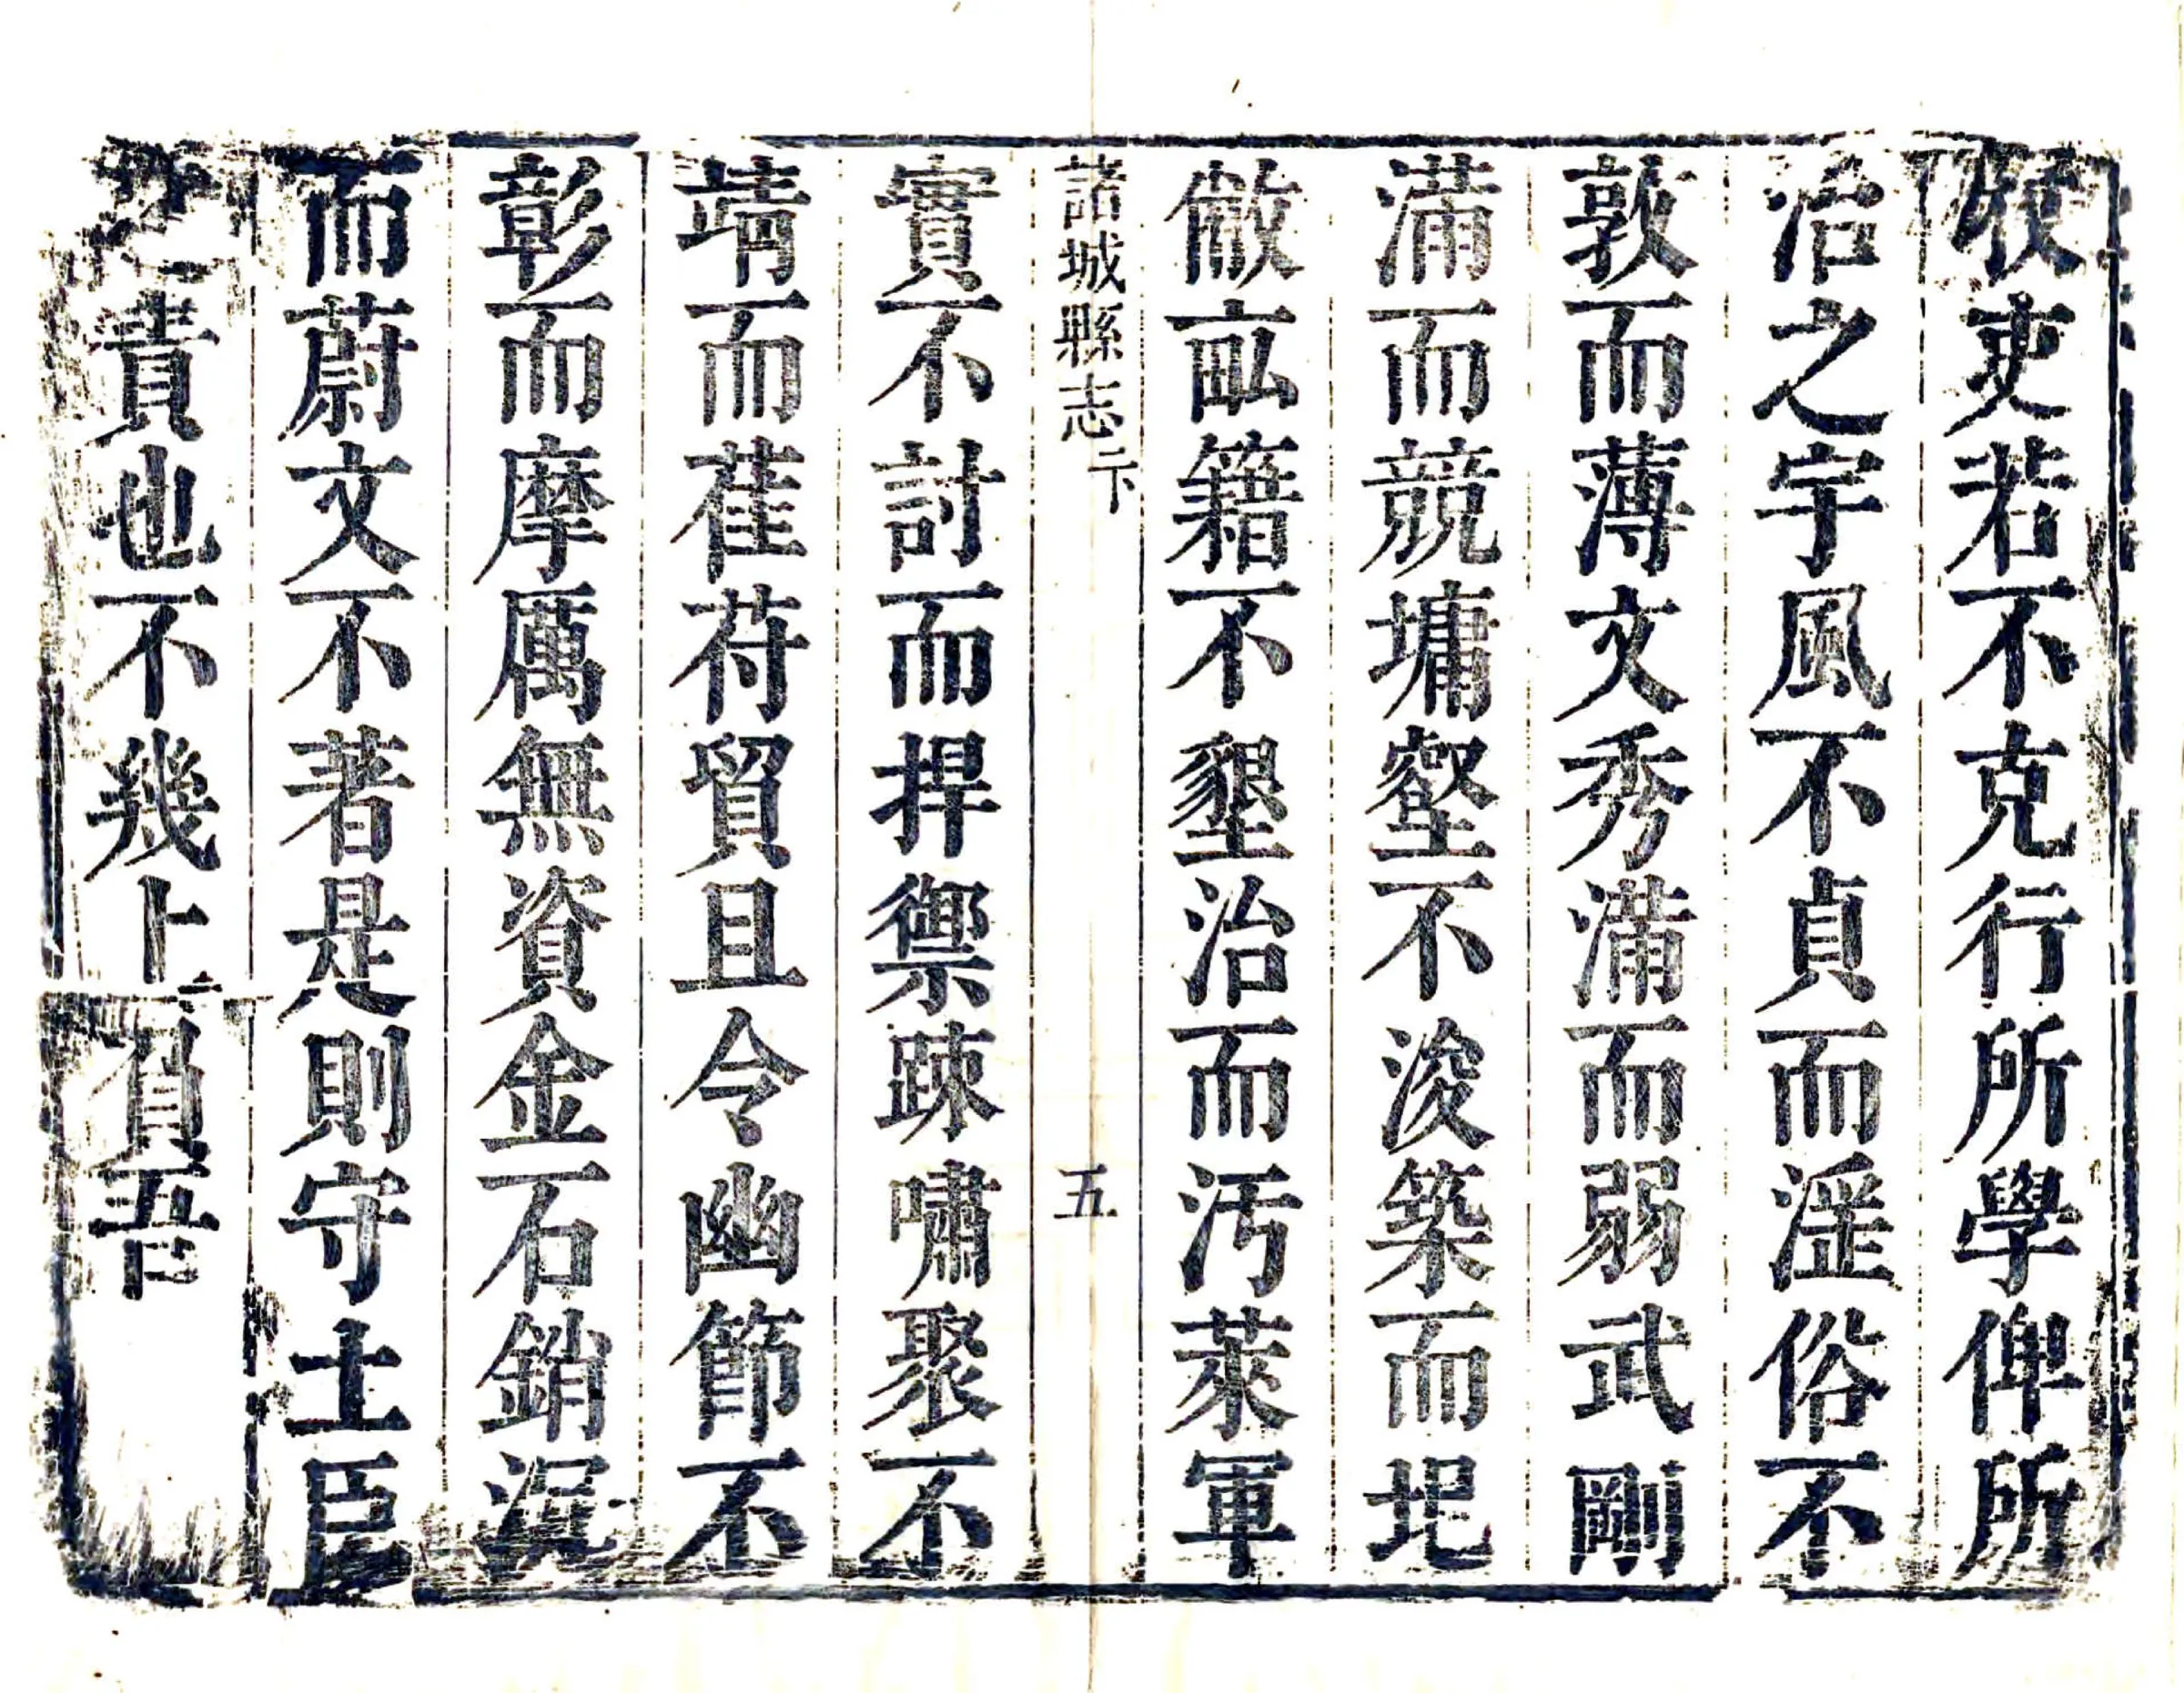 吏若不克行所學俾所
治之宇風不貞而淫俗不
敦而薄文秀滿而弱武剛
滿而競墉壑不浚築而圮
僘畝籍不墾治而汚萊軍
諸城縣志
五
實不討而捍禦疎嘯聚不
靖而萑苻貿且令幽節不
彰而摩厲無資金石銷沉
而蔚文不著是則守土臣
之責也不幾上負吾